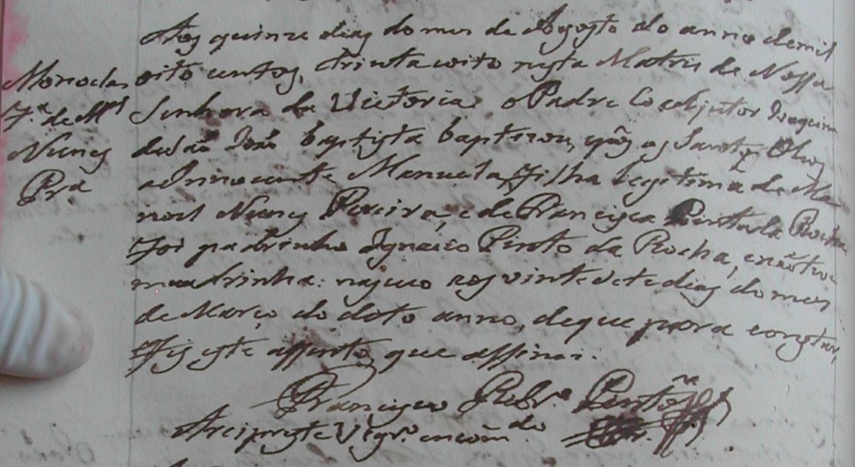 Aos quinze dias do mes de Agosto do anno de mil
oito centos, trinta e oito nesta Matris de Nossa
Senhora da Victoria o Padre Coadjutor Joaquim
de São João Baptista baptizou, e pôs os Santos Oleos
a innocente Manuela, filha legitima de Ma
noel Nunes Pereira, e de Francisca Pinto da Rocha
foi padrinho Ignacio Pinto da Rocha, e não teve
madrinha: nasceo aos vinte e sete dias do mes
de Março do dito anno, de que para constar,
fis este assento, que assinei.
Francisco Robr.ª
Arcipreste Vigr.º encom.do
Manoela
F.ª de M.el
Nunes
Pr.ª